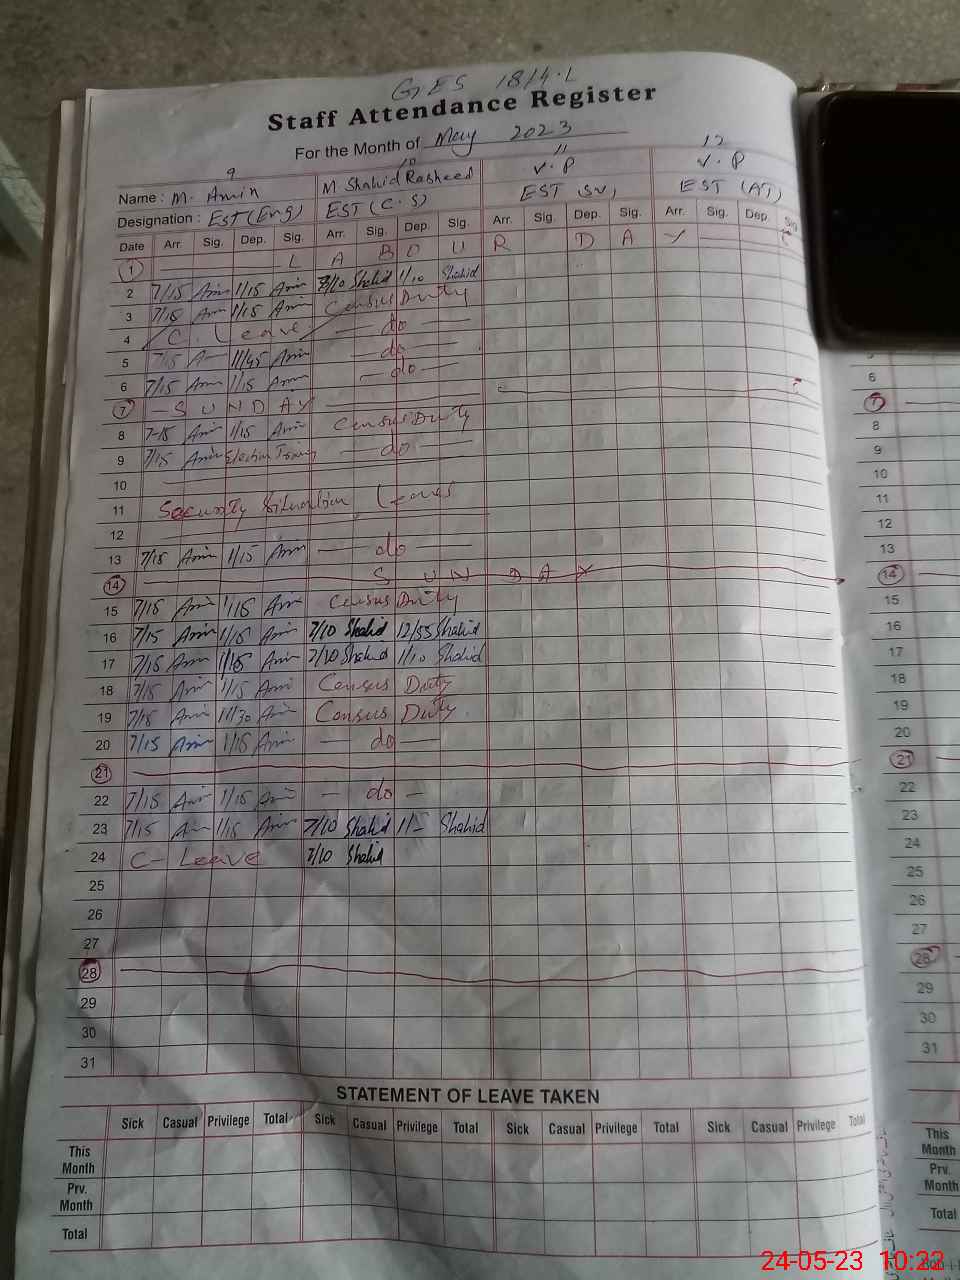 GES 18/4.L
Staff Attendance Register
For the Month of May 2023
9 10 11 12
Name : M. Amin M Shahid Rasheed V.P V.P
Designation : EST (Eng) EST (C.S) EST (SV) EST (AT)
Date Arr. Sig. Dep. Sig. Arr. Sig. Dep. Sig. Arr. Sig. Dep. Sig. Arr. Sig. Dep. Sig
1 L A B O U R D A Y
2 7/15 Amin 1/15 Amin 7/10 Shahid 1/10 Shahid
3 7/15 Amin 1/15 Amin Census Duty
4 C. Leave do
5 7/15 Amin 11/45 Amin do
6 7/15 Amin 1/15 Amin do
7 SUNDAY
8 7-15 Amin 1/15 Amin Census Duty
9 7/15 Amin Election Training do
10
11 Security Situation Leaves
12
13 7/15 Amin 1/15 Amin do
14 S U N D A Y
15 7/15 Amin 1/15 Amin Census Duty
16 7/15 Amin 1/15 Amin 7/10 Shahid 12/55 Shahid
17 7/15 Amin 1/15 Amin 7/10 Shahid 1/10 Shahid
18 7/15 Amin 1/15 Amin Census Duty
19 7/15 Amin 11/30 Amin Census Duty
20 7/15 Amin 1/15 Amin do
21
22 7/15 Amin 1/15 Amin do
23 7/15 Amin 1/15 Amin 7/10 Shahid 1/- Shahid
24 C- Leave 7/10 Shahid
25
26
27
28
29
30
31
STATEMENT OF LEAVE TAKEN
Sick Casual Privilege Total Sick Casual Privilege Total Sick Casual Privilege Total Sick Casual Privilege Total
This Month
Prv. Month
Total
6
7
8
9
10
11
12
13
14
15
16
17
18
19
20
21
22
23
24
25
26
27
28
29
30
31
This Month
Prv. Month
Total
24-05-23 10:22